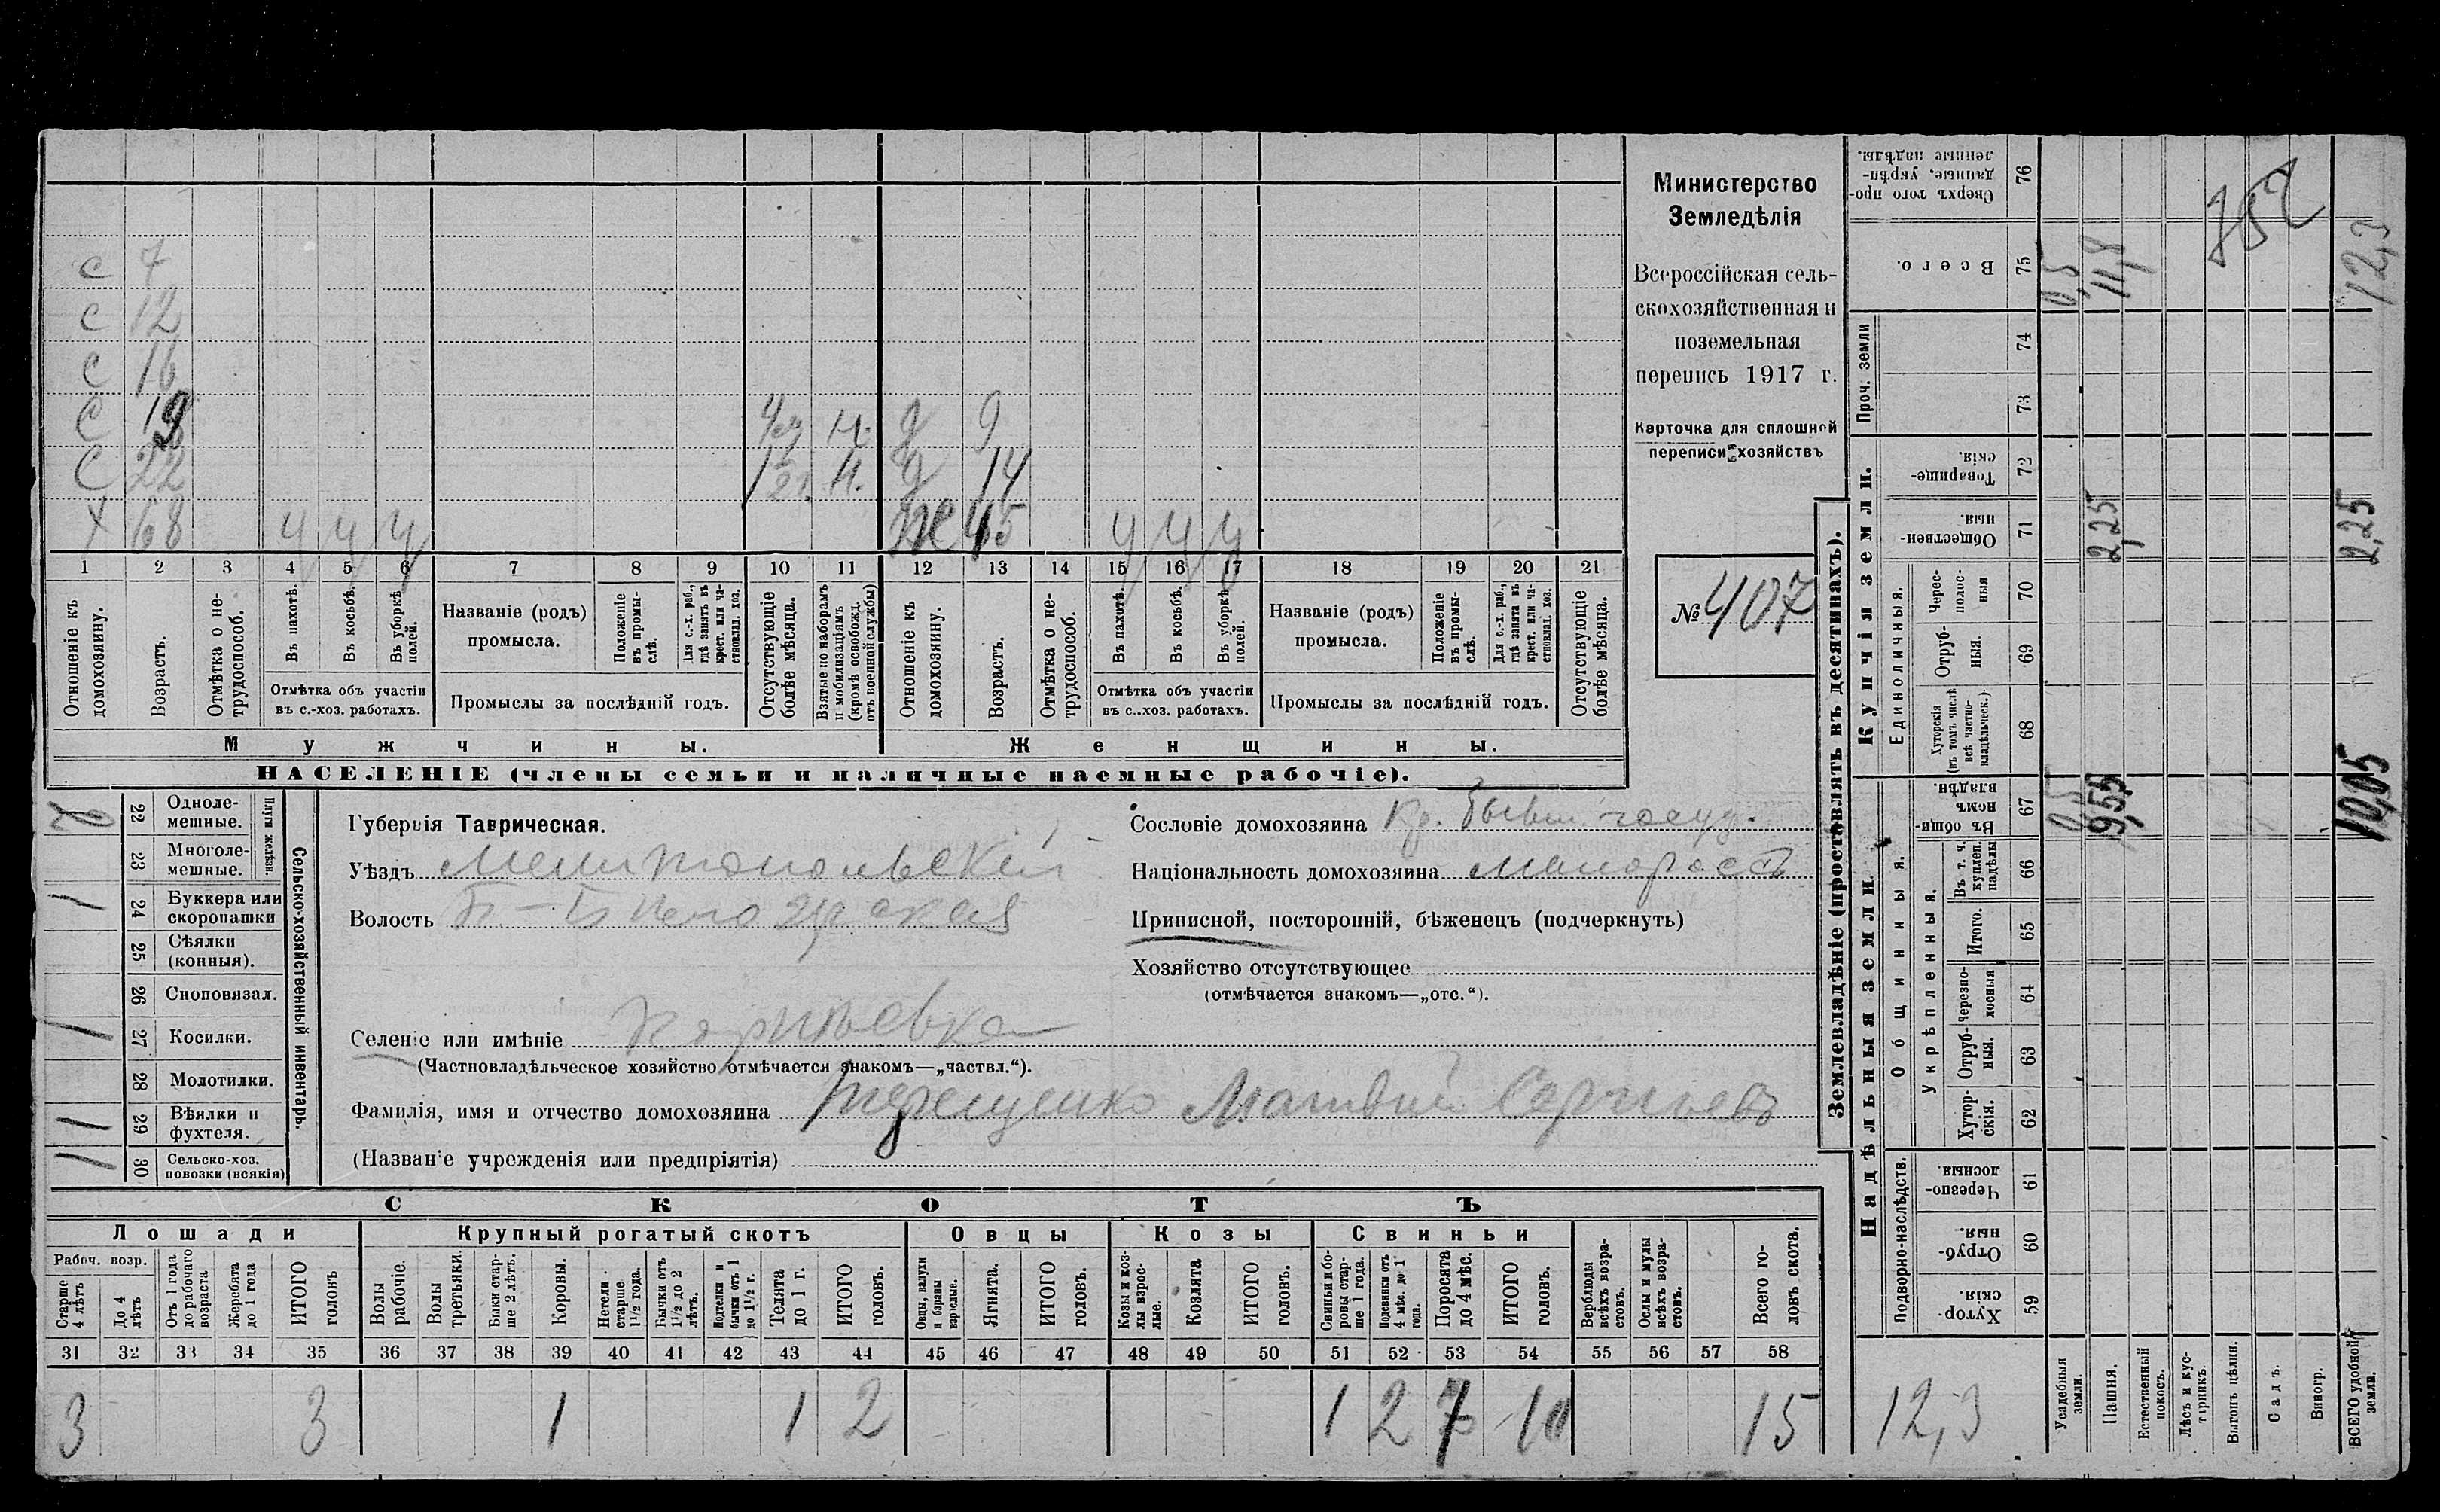 с 7
с 12
с 16
с 19
с 22 1 2г. н. д 14
х 68 ч ч ч ж 45 ч ч ч
1 2 3 4 5 6 7 8 9 10 11 12 13 14 15 16 17 18 19 20 21
Отношеніе къ домохозяину.
Возрастъ.
Отмѣтка о не-трудоспособ.
Въ пахотѣ.
Въ косьбѣ.
Въ уборкѣ полей.
Отмѣтка объ участіи
въ с.-хоз. работахъ.
Названіе (родъ)
промысла.
Положеніе въ промы-слѣ.
Для с.-х. раб., гдѣ занятъ въ крест. или ча-стновлад. хоз.
Промыслы за послѣдній годъ.
Отсутствующіе болѣе мѣсяца.
Взятые по наборамъ и мобилизаціямъ (кромѣ освобожд. отъ военной службы)
Отношеніе къ домохозяину.
Возрастъ.
Отмѣтка о не-трудоспособ.
Въ пахотѣ.
Въ косьбѣ.
Въ уборкѣ полей.
Отмѣтка объ участіи
въ с.-хоз. работахъ.
Названіе (родъ)
промысла.
Положеніе въ промы-слѣ.
Для с.-х. раб., гдѣ занята въ крест. или ча-стновлад. хоз.
Промыслы за послѣдній годъ.
Отсутствующіе болѣе мѣсяца.
Мужчины.
Женщины.
НАСЕЛЕНІЕ (члены семьи и наличные наемные рабочіе).
Министерство
Земледѣлія
Всероссійская сель-
скохозяйственная и
поземельная
перепись 1917 г.
Карточка для сплошной
переписи хозяйствъ
№ 407
Сельско-хозяйственный инвентарь.
Плуги желѣзн.
22 Одноле-мешные.
23 Многоле-мешные.
24 Буккера или скоропашки 1
25 Сѣялки (конныя).
26 Сноповязал.
27 Косилки. 1
28 Молотилки.
29 Вѣялки и фухтеля. 1
30 Сельско-хоз. повозки (всякія) 1
Губернія Таврическая.
Уѣздъ Мелитопольскій
Волость
Селеніе или имѣніе
(Частновладѣльческое хозяйство отмѣчается знакомъ—„частвл.“).
Фамилія, имя и отчество домохозяина Терещенко Матвій Сергѣевъ
(Названіе учрежденія или предпріятія)
Сословіе домохозяина Кр. бывш. госуд.
Національность домохозяина малоросъ
Приписной, посторонній, бѣженецъ (подчеркнуть)
Хозяйство отсутствующее
(отмѣчается знакомъ—„отс.“).
СКОТЪ
Лошади
Крупный рогатый скотъ
Овцы
Козы
Свиньи
Рабоч. возр.
Старше 4 лѣтъ
До 4 лѣтъ
Отъ 1 года до рабочаго возраста
Жеребята до 1 года
ИТОГО головъ
Волы рабочіе.
Волы третьяки.
Быки стар-ше 2 лѣтъ.
Коровы.
Нетели старше 1½ года.
Бычки отъ 1½ до 2 лѣтъ.
Подтелки и бычки отъ 1 до 1½ г.
Телята до 1 г.
ИТОГО головъ.
Овцы, валухи и бараны взрослые.
Ягнята.
ИТОГО головъ.
Козы и коз-лы взрос-лые.
Козлята
ИТОГО головъ.
Свиньи и бо-ровы стар-ше 1 года.
Подсвинки отъ 4 мѣс. до 1 года.
Поросята до 4 мѣс.
ИТОГО головъ.
Верблюды всѣхъ возра-стовъ.
Ослы и мулы всѣхъ возра-стовъ.
Всего го-ловъ скота.
31 32 33 34 35 36 37 38 39 40 41 42 43 44 45 46 47 48 49 50 51 52 53 54 55 56 57 58
3 3 1 1 2 1 2 7 10 15
Землевладѣніе (проставлять въ десятинахъ).
Надѣльныя земли.
Купчія земли.
Проч. земли
Подворно-наслѣдств.
Общинныя.
Укрѣпленныя.
Единоличныя.
Хутор-скія. 59
Отруб-ныя. 60
Черезпо-лосныя 61
Хутор-скія. 62
Отруб-ныя. 63
Черезпо-лосныя 64
Итого. 65
Въ т. ч. куплен. надѣлы 66
Въ общин-номъ владѣн. 67
Хуторскія (въ томъ числѣ всѣ частно-владѣльческ.) 68
Отруб-ныя. 69
Черес-полос-ныя 70
Обществен-ныя. 71
Товарище-скія. 72
73
74
Всего. 75
Сверхъ того про-данные, укрѣп-ленные надѣлы. 76
Усадебныя земли.
Пашня.
Естественный покосъ.
Лѣсъ и кус-тарникъ.
Выгонъ цѣлин.
Садъ.
Виногр.
ВСЕГО удобной земли.
12,3
0,5
9,55
10,05
2,25
2,25
0,5
11,8
12,3